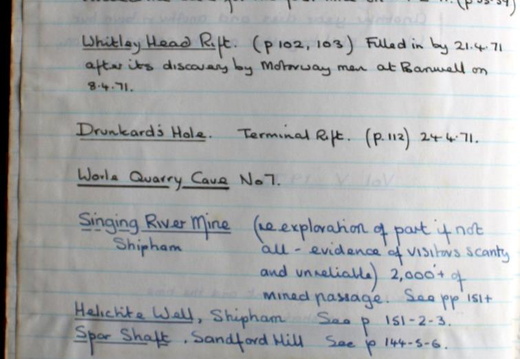 Whitley Head Rift. (p 102, 103) Filled in by 21.4.71
after its discovery by Motorway men at Banwell on
8.4.71.
Drunkard's Hole. Terminal Rift. (p.112) 24.4.71.
Worle Quarry Cave No7.
Singing River Mine (re exploration of part if not
Shipham all - evidence of visitors scanty
and unreliable) 2,000'+ of
mined passage. See pp 151+
Helictite Well, Shipham See p 151-2-3.
Spar Shaft, Sandford Hill See p 144-5-6.